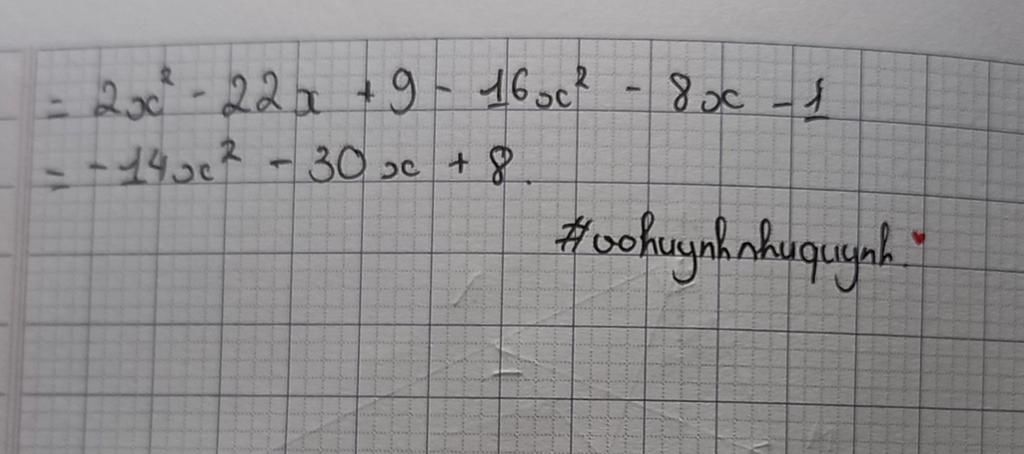 = 2x² - 22x + 9 - 16x² - 8x - 1
= -14x² - 30x + 8.
#vohuynhnhuquynh.